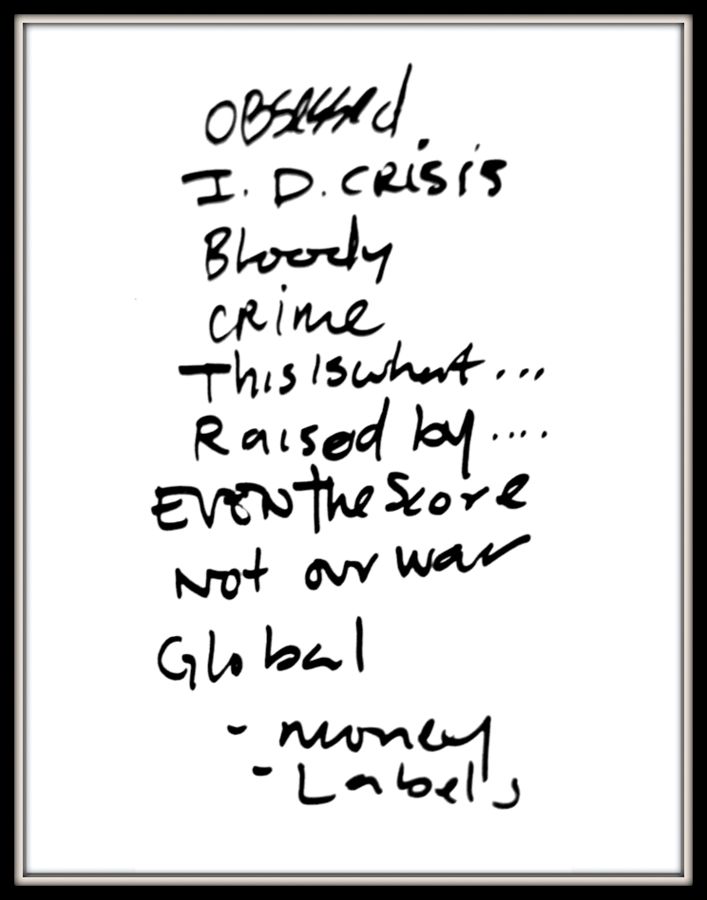 OBsessed
I. D. CRisis
Bloody
CRime
This is what...
Raised by....
EVEN the Score
Not our war
Global
- money
- Labels